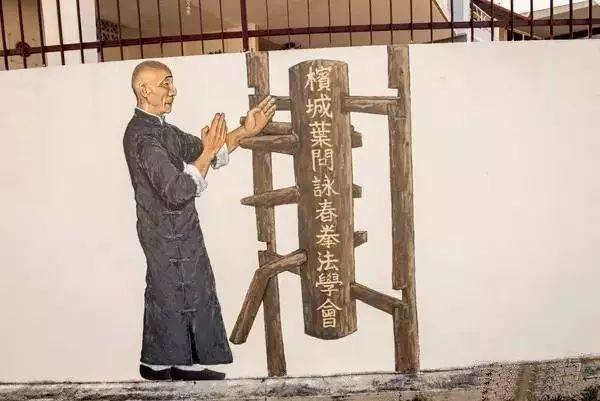 檳城葉問詠春拳法學會